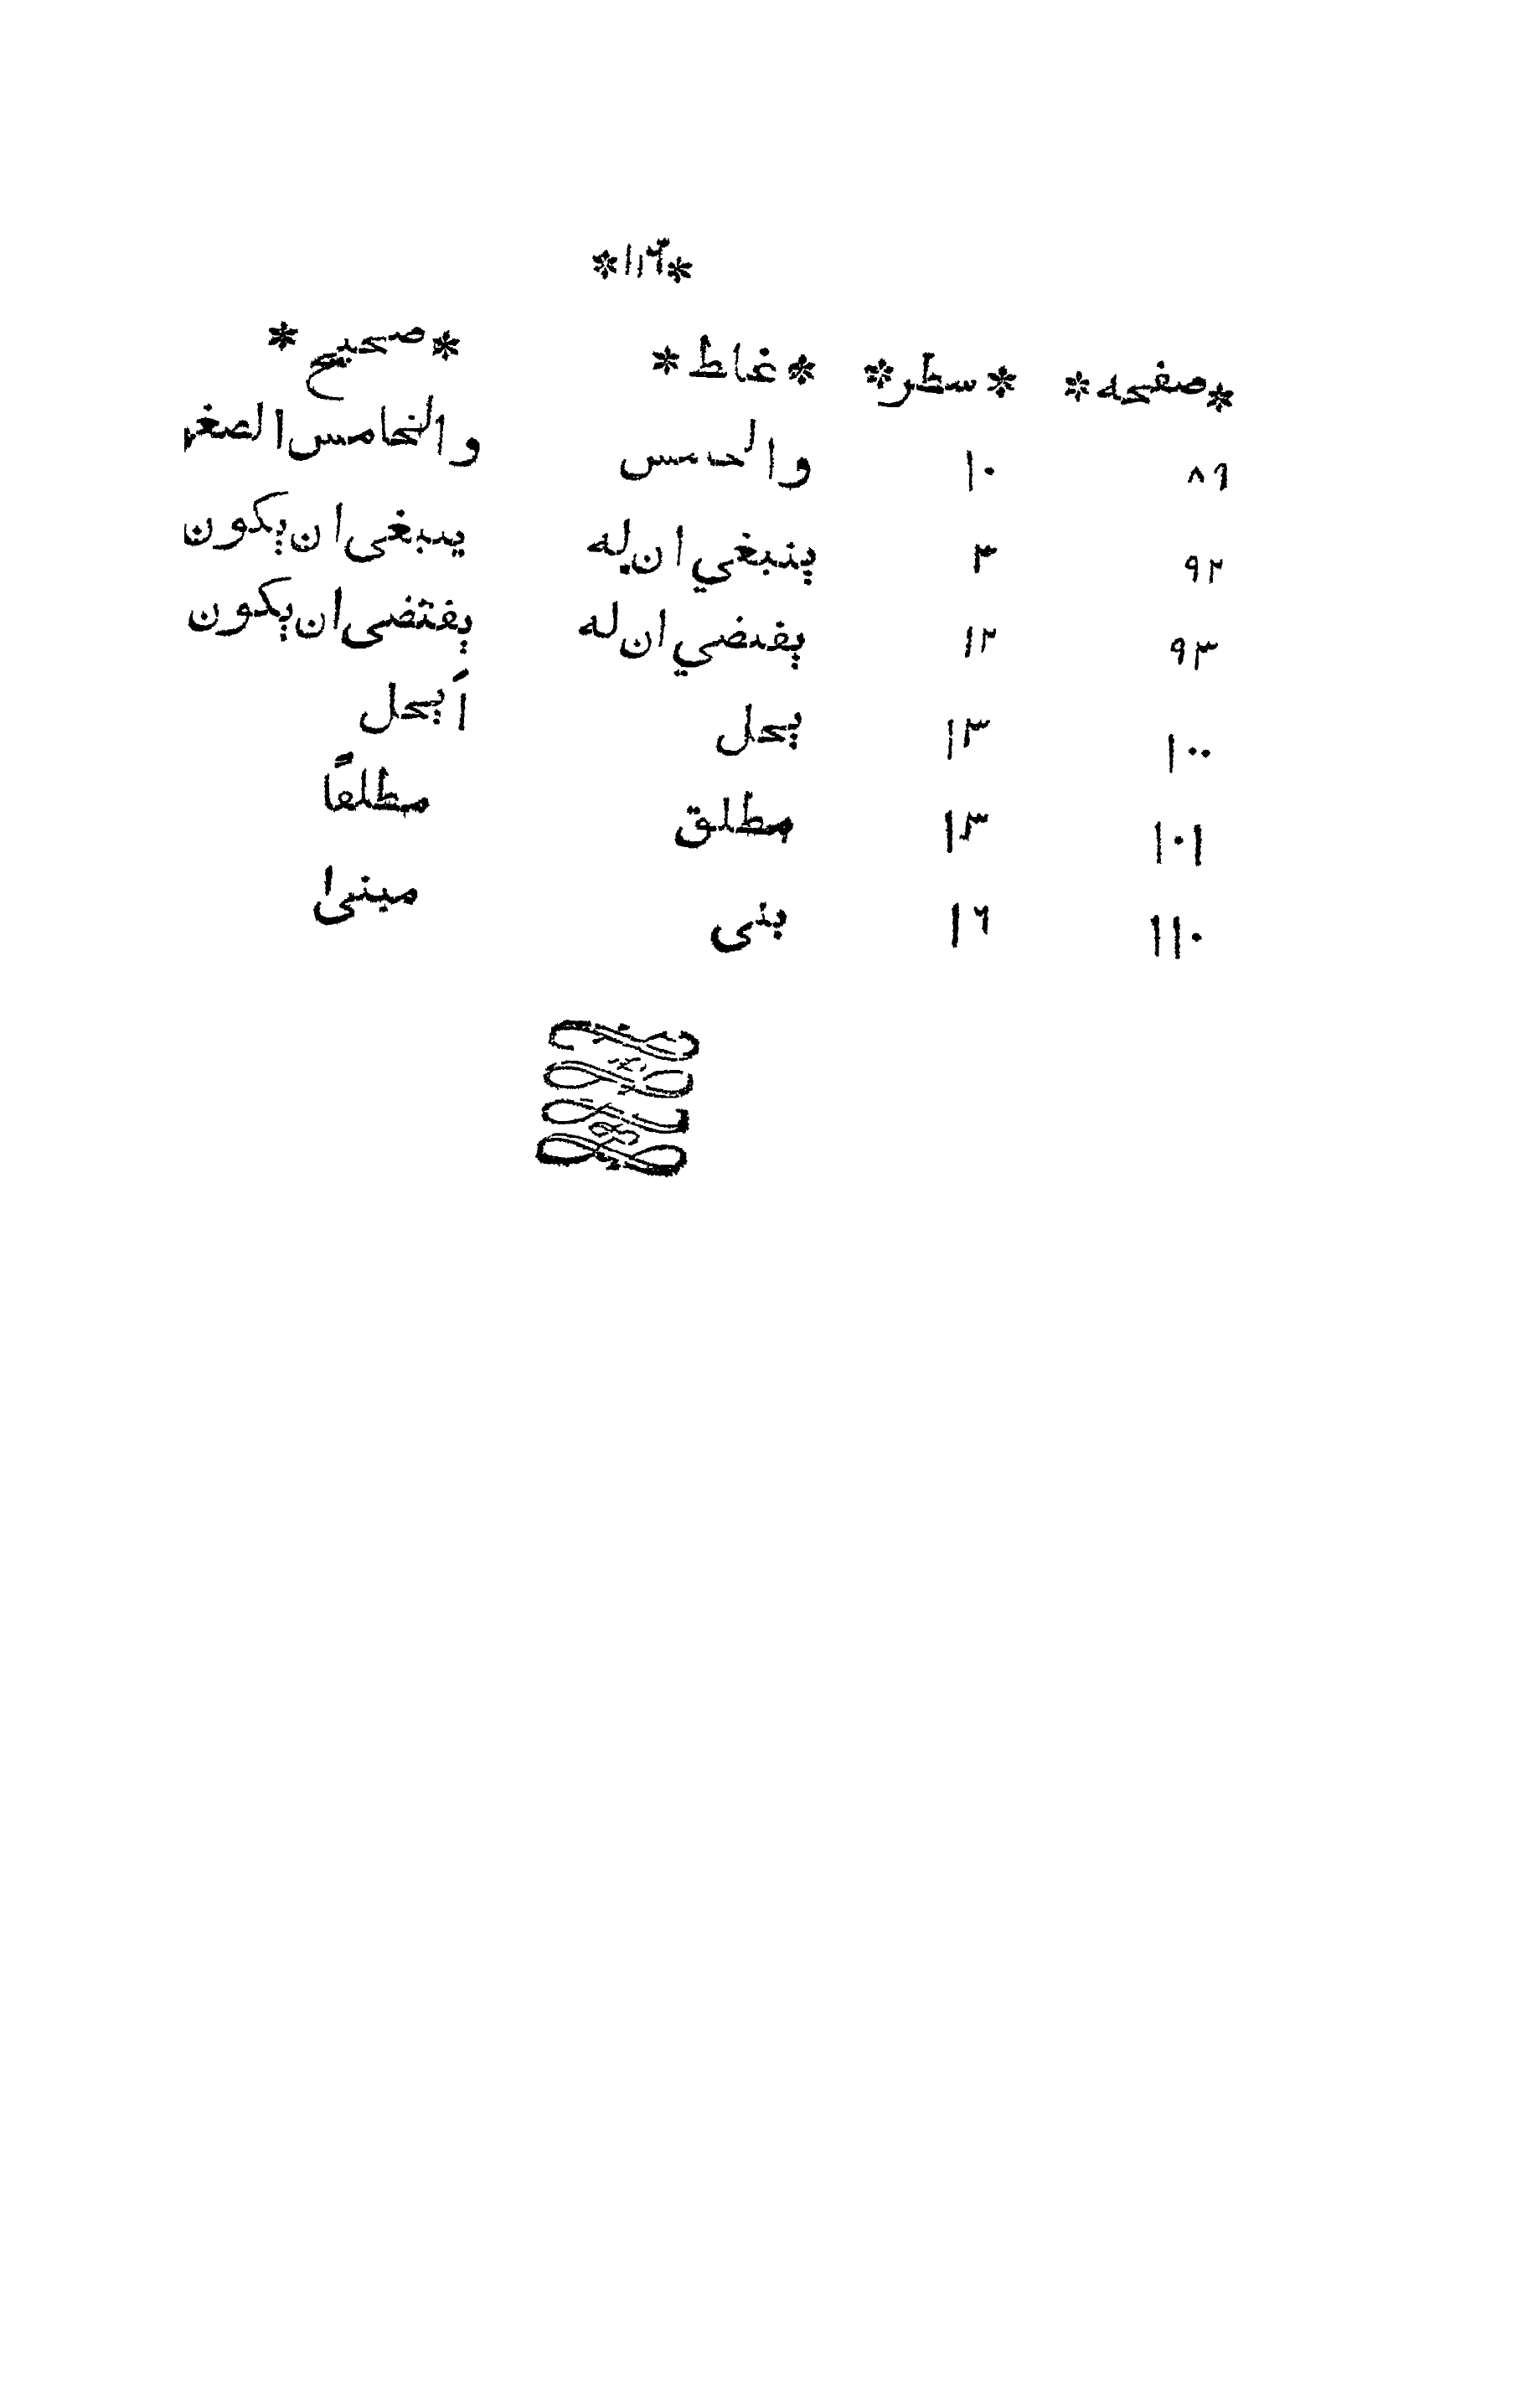 *١١٦*
*صفحه* *سطر* *غلط* *صحيح*
٨٦ ١٠ والحامس والخامس الصغر
٩٢ ٣ ينبغي ان له ينبغى ان يكون
٩٣ ١٢ يقتضي ان له يقتضى ان يكون
١٠٠ ١٣ يحل اَ يحل
١٠١ ١٣ مطلق مطلقاً
١١٠ ١٦ بنى مبنى